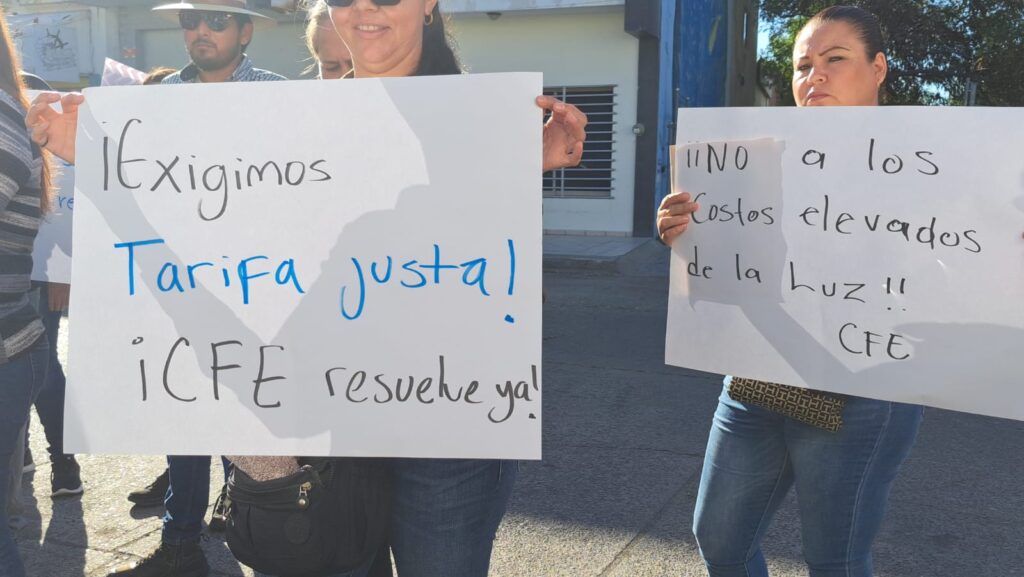 ¡Exigimos
Tarifa justa!
¡CFE resuelve ya!
¡¡NO a los
Costos elevados
de la Luz!!
CFE